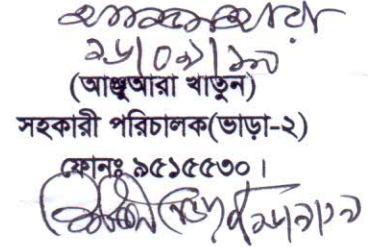 ২৬/০৯/১৭
(আঞ্জুআরা খাতুন)
সহকারী পরিচালক(ভাড়া-২)
ফোনঃ ৯৫১৫৫৩০।